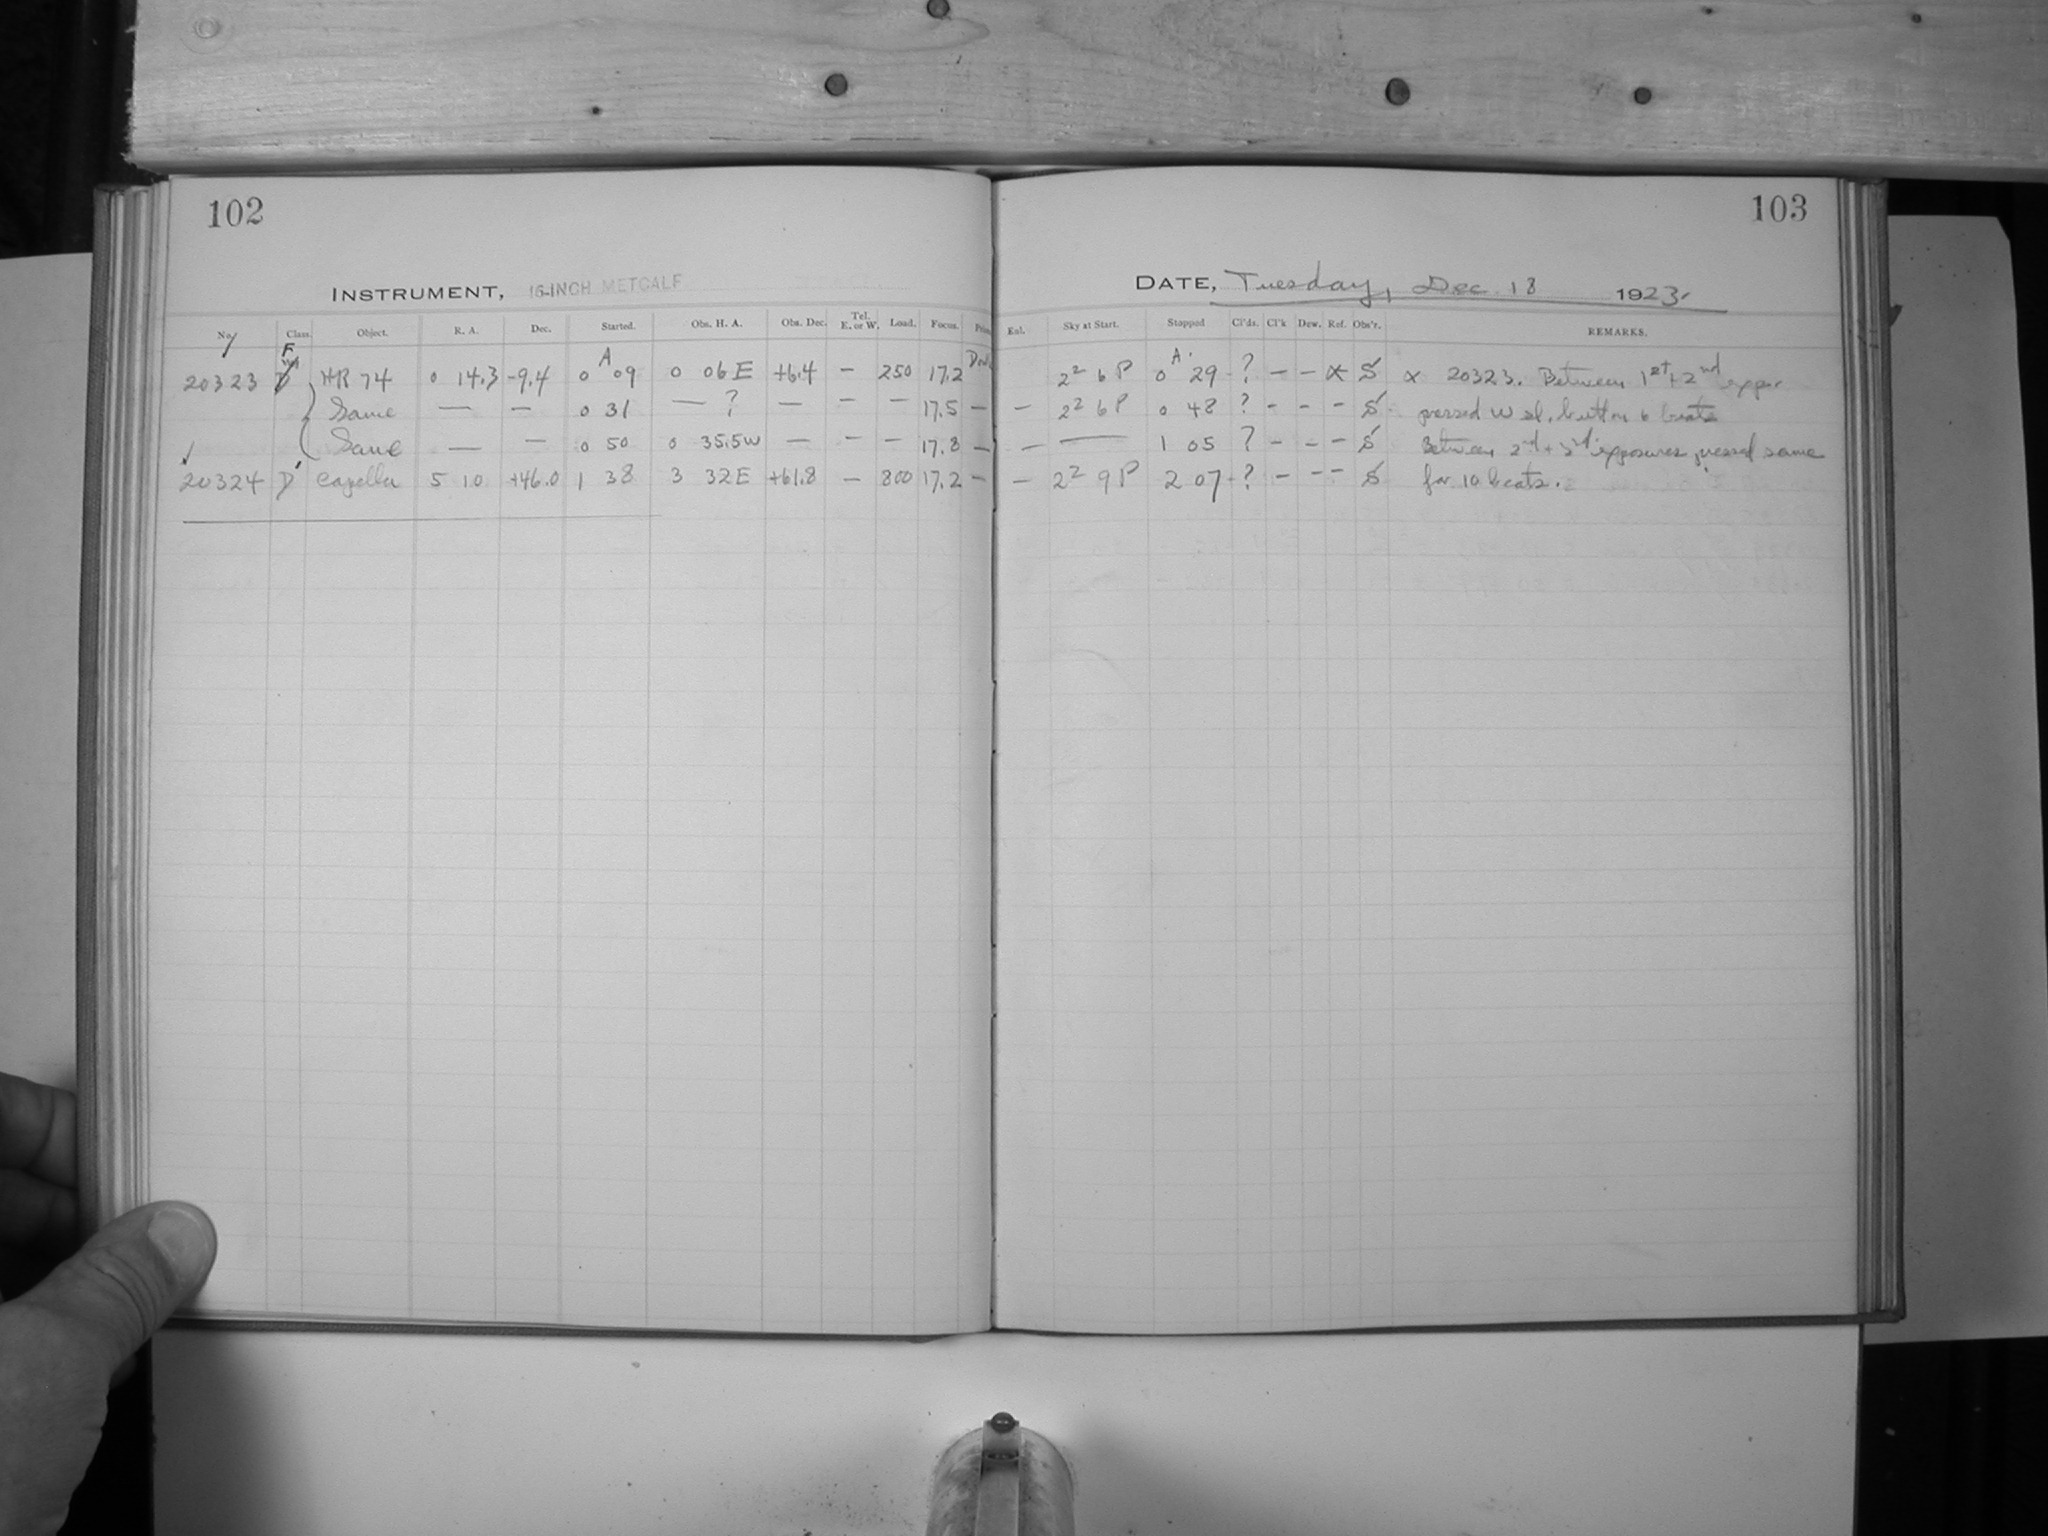 102
INSTRUMENT, 16-INCH METCALF
No. Class. Object. R. A. Dec. Started. Obs. H. A. Obs. Dec. Tel. E. or W. Load. Focus.
20323 F HR 74 0 14.3 -9.4 0 A 09 0 06 E +6.4 — 250 17.2
Same — — 0 31 — ? — — — 17.5 —
Same — — 0 50 0 35.5 W — — — 17.8 —
20324 D Capella 5 10 +46.0 1 38 3 32 E +61.8 — 800 17.2 —
103
DATE, Tuesday, Dec. 18 1923.
Enl. Sky at Start. Stopped Cl'ds. Cl'k Dew. Ref. Obs'r. REMARKS.
2 2 6 P 0 A. 29 ? — — x S x 20323. Between 1st + 2nd expos
— 2 2 6 P 0 48 ? - - - S pressed W sl. button 6 beats
— — 1 05 ? - - - S Between 2nd + 3rd exposures pressed same
— 2 2 9 P 2 07 ? - - - S for 10 beats.